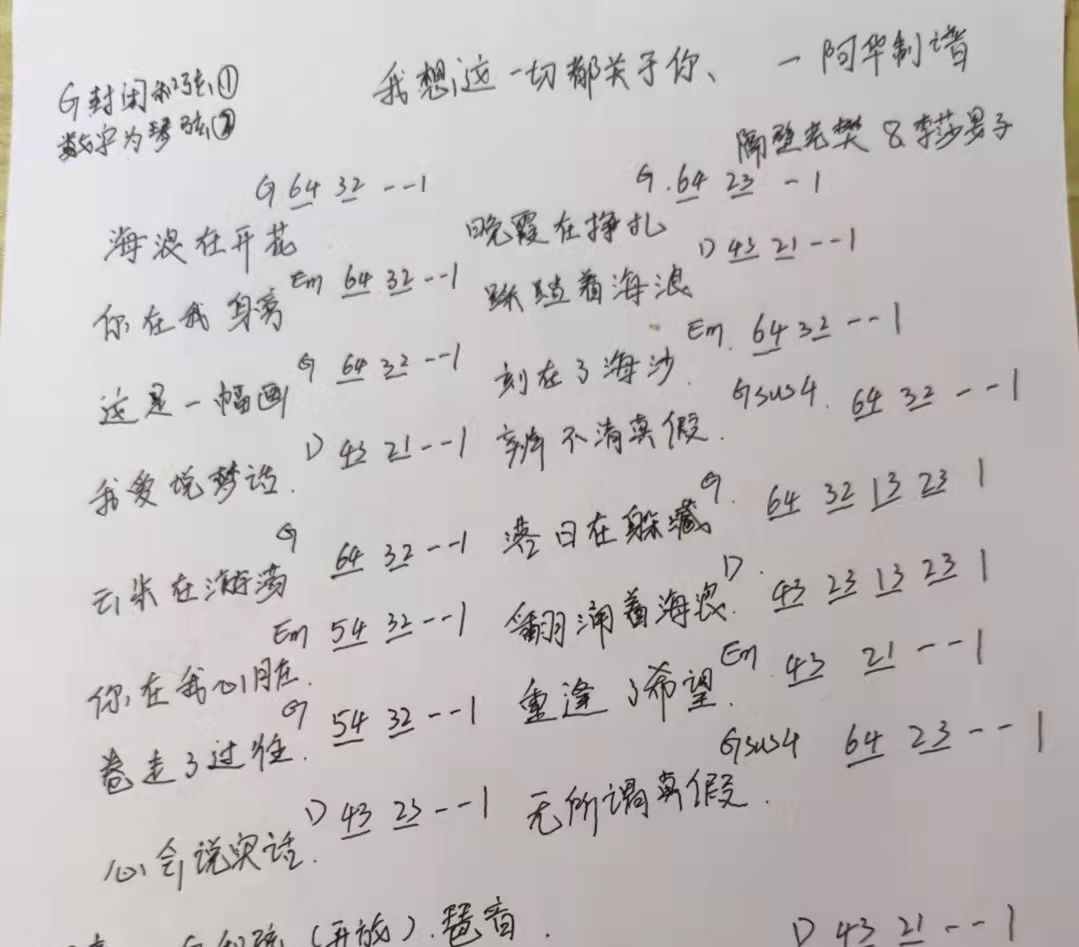 G封闭和弦①
数字为琴弦②
我想这一切都关于你、 一阿华制谱
隔壁老樊 & 李莎旻子
G 64 32 --1 G. 64 23 -1
海浪在开花 晚霞在挣扎
Em 64 32 --1 D 43 21 --1
你在我身旁 踩踏着海浪
G 64 32 --1 Em. 64 32 --1
这是一幅画 刻在了海沙.
D 43 21 --1 Gsus4. 64 32 --1
我爱说梦话. 辨不清真假.
G 64 32 --1 G. 64 32 13 23 1
云朵在游荡 落日在躲藏
Em 54 32 --1 D. 43 23 13 23 1
你在我心脏. 翻涌着海浪.
G 54 32 --1 Em. 43 21 --1
卷走了过往. 重逢了希望.
D 43 23 --1 Gsus4 64 23 --1
心会说实话. 无所谓真假.
(开放).琶音. D 43 21 --1